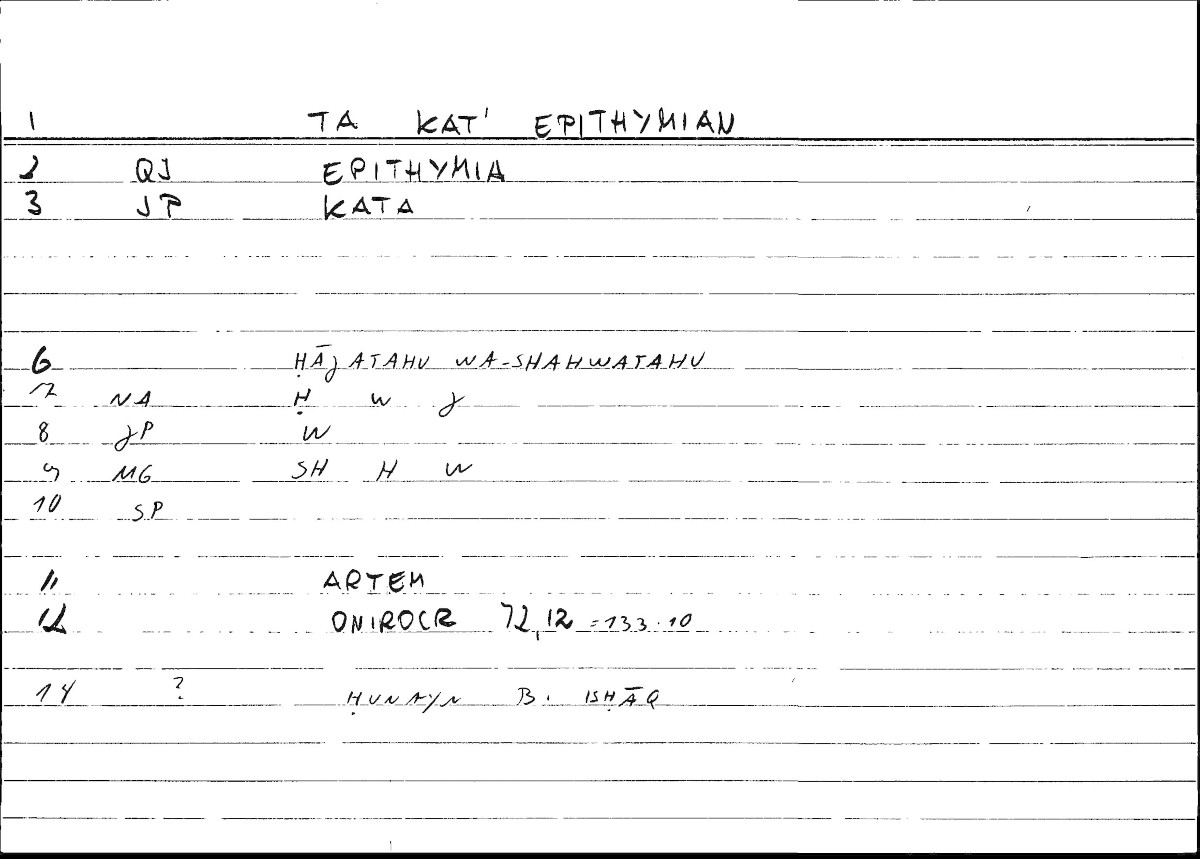 1 TA KAT' EPITHYMIAN
2 QJ EPITHYMIA
3 JP KATA
6 ḤĀJATAHU WA-SHAHWATAHU
7 NA Ḥ W J
8 JP W
9 MG SH H W
10 SP
11 ARTEM
12 ONIROCR 72,12 = 133.10
14 ? ḤUNAYN B. ISḤĀQ